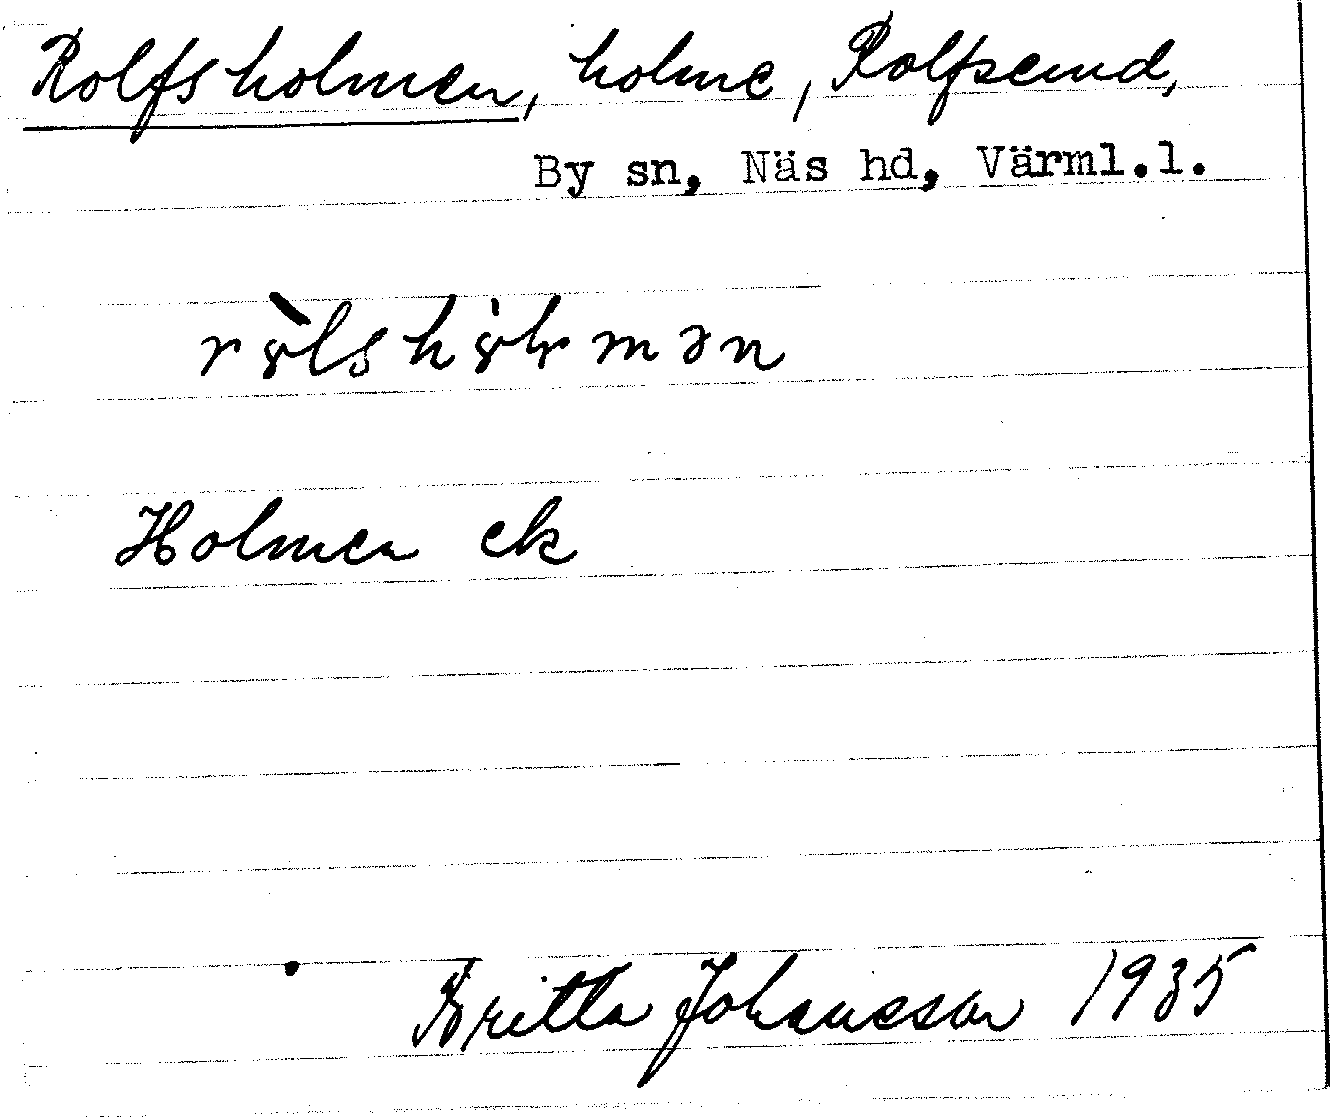 Rolfsholmen, holme, Rolfserud,
By sn, Näs hd, Värml.l.
Holmen ek
Britta Johansson 1935